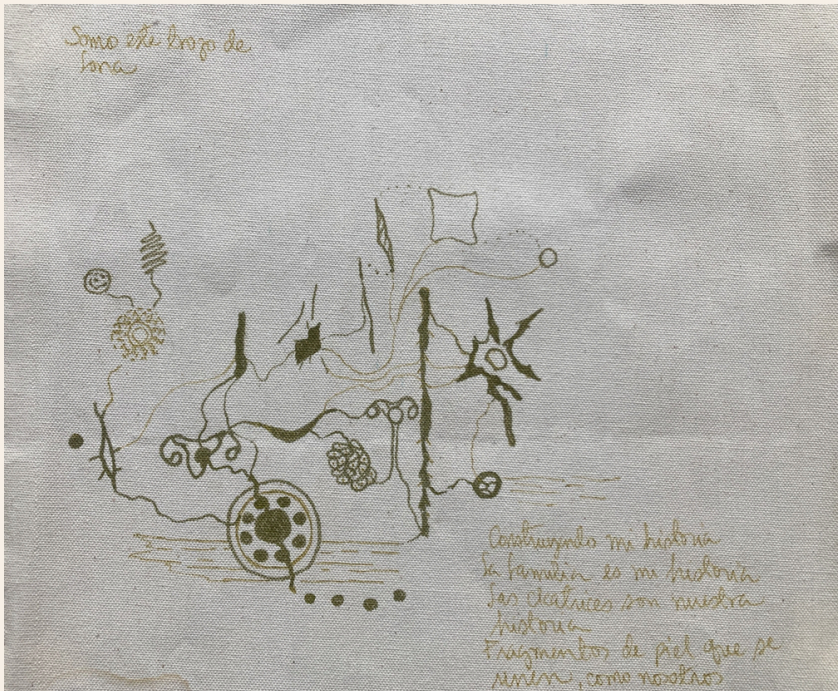 Somo este trozo de
lona
Construyendo mi historia
La familia es mi historia
Las cicatrices son nuestra
historia
Fragmentos de piel que se
unen, como nosotros